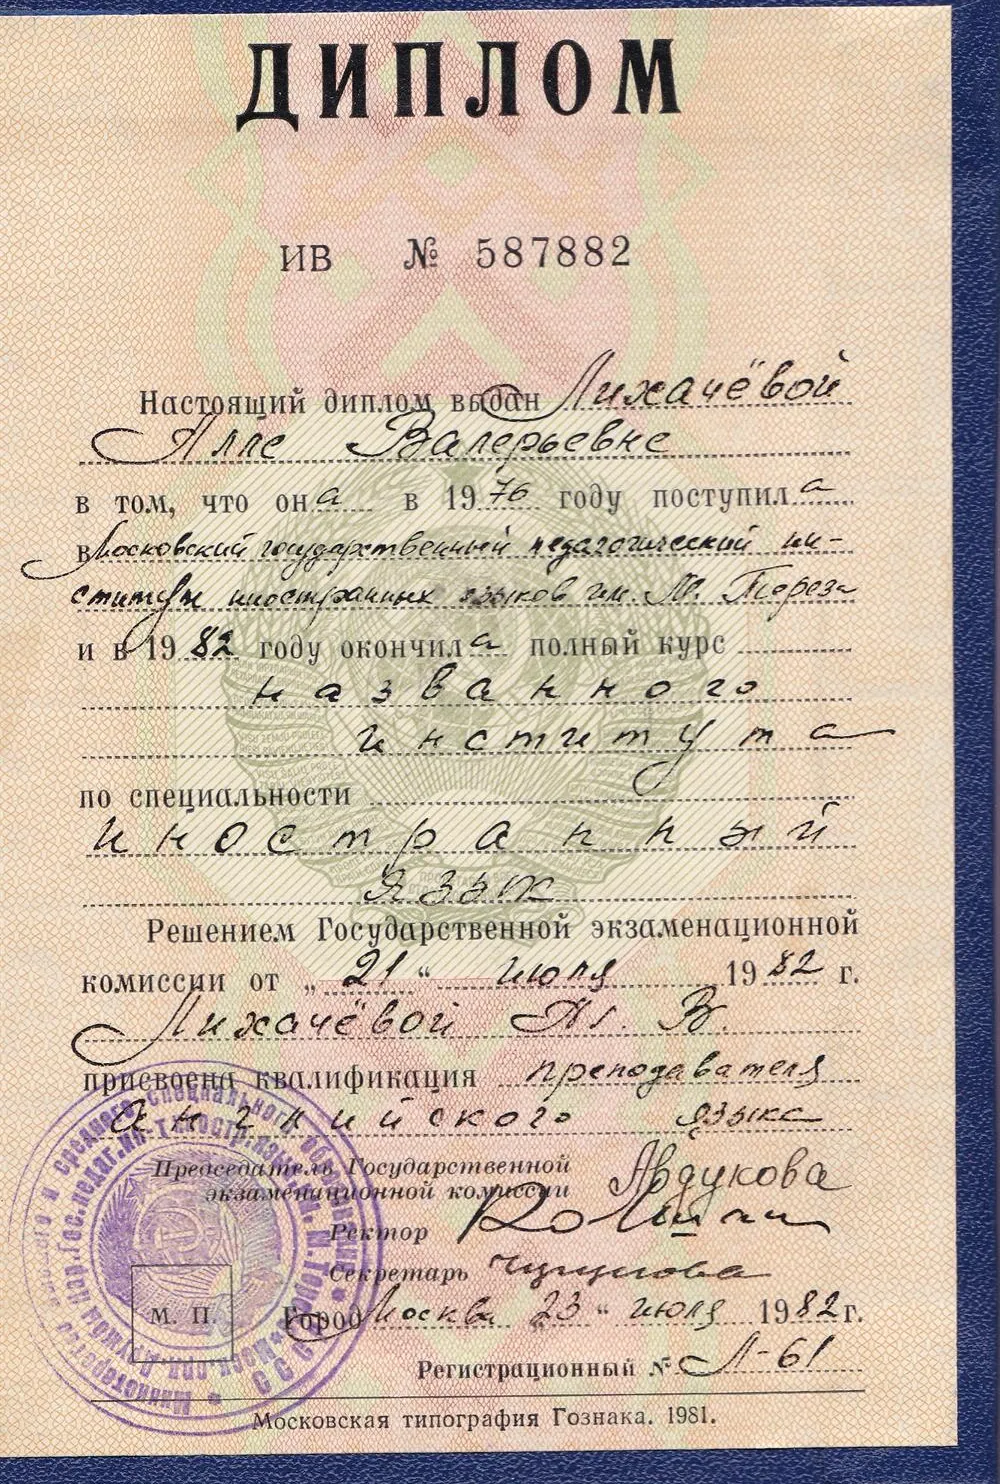 ДИПЛОМ
ИВ № 587882
Настоящий диплом выдан Лихачёвой
Алле Валерьевне
в том, что она в 1976 году поступила
в Московский государственный педагогический ин-
ститут иностранных языков им. М. Тореза
и в 1982 году окончила полный курс
названного
института
по специальности
иностранный
язык
Решением Государственной экзаменационной
комиссии от „21“ июля 1982 г.
Лихачёвой Ал. В.
присвоена квалификация преподавателя
английского языка
Председатель Государственной
экзаменационной комиссии Авдукова
Ректор
Секретарь
М. П.
Город Москва „23“ июля 1982 г.
Регистрационный № Л-61
Московская типография Гознака. 1981.